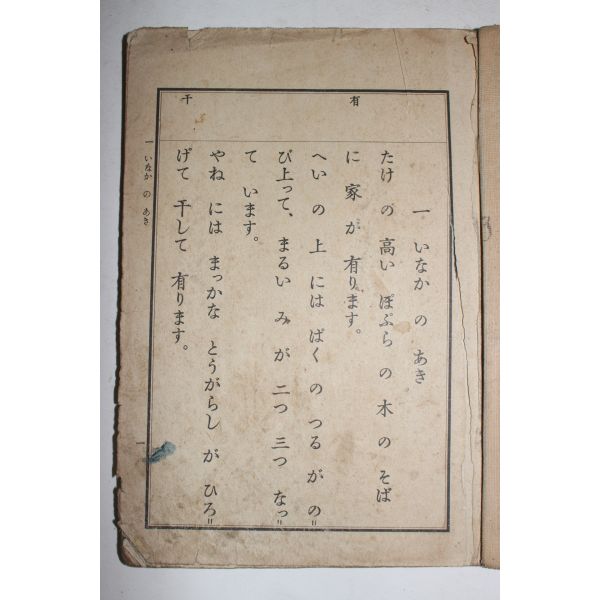 有
干
一 いなか の あき
たけ の 高い ぽぷら の 木 の そば
に 家 が 有ります。
へい の 上 には ぱく の つる が の゠
び上って、まるい み が 二つ 三つ なっ゠
て います。
やね には まっかな とうがらし が ひろ゠
げて 干して 有ります。
一 いなか の あき
一